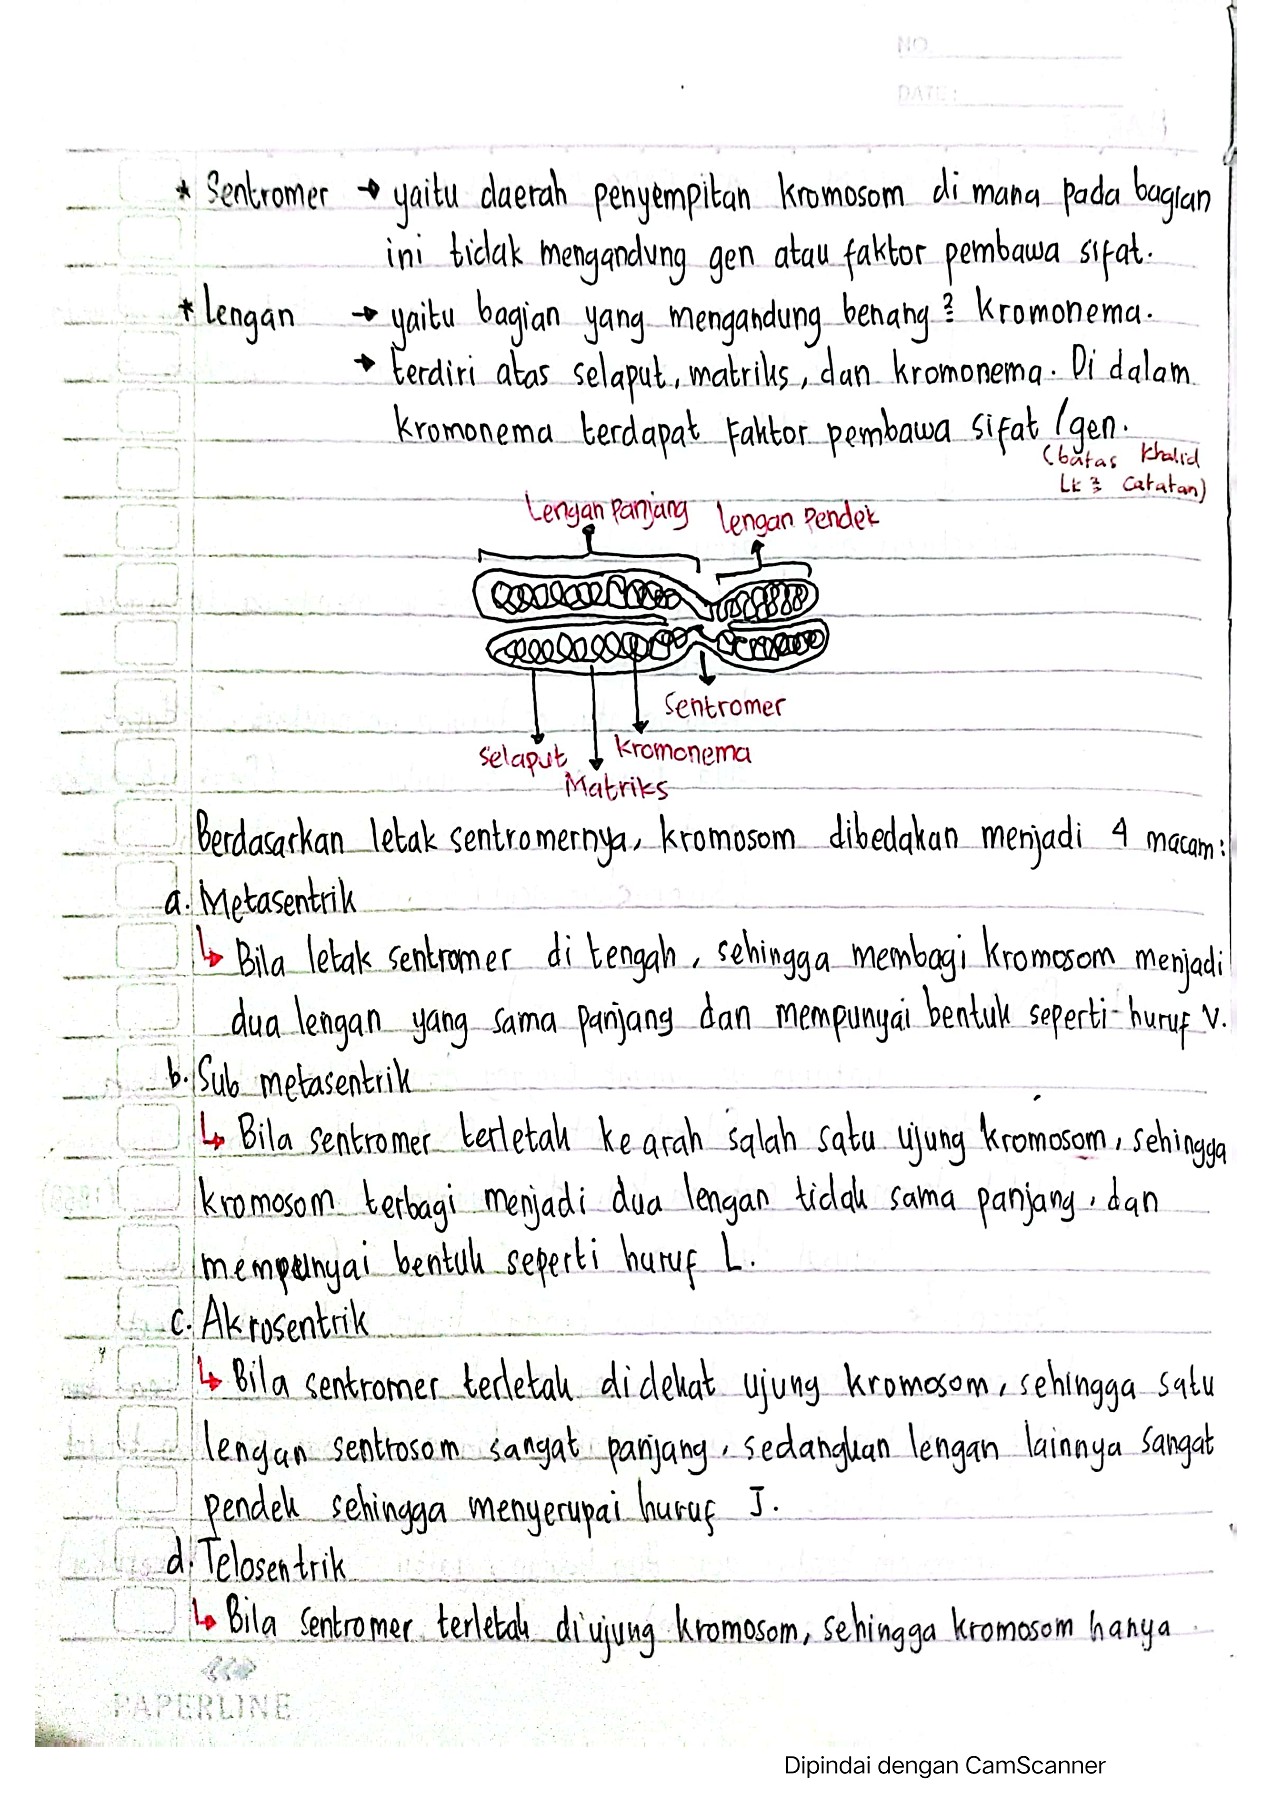 NO
DATE:
* Sentromer → yaitu daerah penyempitan kromosom di mana pada bagian
ini tidak mengandung gen atau faktor pembawa sifat.
* Lengan → yaitu bagian yang mengandung benang² kromonema.
→ terdiri atas selaput, matriks, dan kromonema. Di dalam
kromonema terdapat faktor pembawa sifat / gen.
(batas Khalid
Catatan)
Lengan Panjang
Lengan Pendek
Sentromer
Selaput
Kromonema
Matriks
Berdasarkan letak sentromernya, kromosom dibedakan menjadi 4 macam:
a. Metasentrik
↳ Bila letak sentromer di tengah, sehingga membagi kromosom menjadi
dua lengan yang sama panjang dan mempunyai bentuk seperti huruf V.
b. Sub metasentrik
↳ Bila sentromer terletak ke arah salah satu ujung kromosom, sehingga
kromosom terbagi menjadi dua lengan tidak sama panjang, dan
mempunyai bentuk seperti huruf L.
c. Akrosentrik
↳ Bila sentromer terletak didekat ujung kromosom, sehingga satu
lengan sentrosom sangat panjang, sedangkan lengan lainnya sangat
pendek sehingga menyerupai huruf J.
d. Telosentrik
↳ Bila sentromer terletak diujung kromosom, sehingga kromosom hanya
PAPERLINE
Dipindai dengan CamScanner